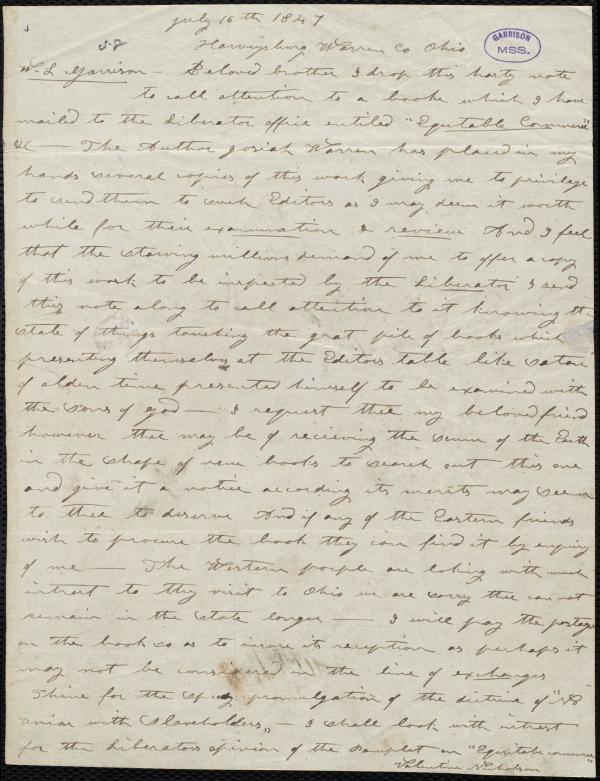 July 16th 1847
Harveysburg Warren Co Ohio
GARRISON
MSS.
W. L. Garrison - Beloved brother I drop this hasty note
to call attention to a booke which I have
mailed to the Liberator office entiled "Equitable Commerce"
&c — The Author Josiah Warren has placed in my
hands several copies of this work giving me to privilage
to send them to such Editors as I may deem it worth
while for their examination & review And I feel
that the starving millions demand of me to offer a copy
of this work to be inspected by the Liberator I send
this note along to call attention to it knowing the
state of things touching the grat pile of books which
presenting themselves at the Editors table like Satan
of olden time presented himself to be examined with
the sons of god — I request thee my beloved friend
however thee may be of recieving the scum of the Earth
in the shape of new books to search out this one
and give it a notice according its merits may seem
to thee to deserve And if any of the Eastern friends
wish to procure the book they can find it by enquiry
of me — The Western people are loking with much
intrest to thy visit to Ohio we are sorry thee can not
remain in the State longer — I will pay the postage
on the book so as to insure its reception as perhaps it
may not be considered in the line of exchanges
Thine for the speedy promulgation of the doctrine of "No
union with Slaveholders„ — I shall look with intrest
for the Liberators opinion of the pamplet on "Equitable commerce"
Valentine Nicholson